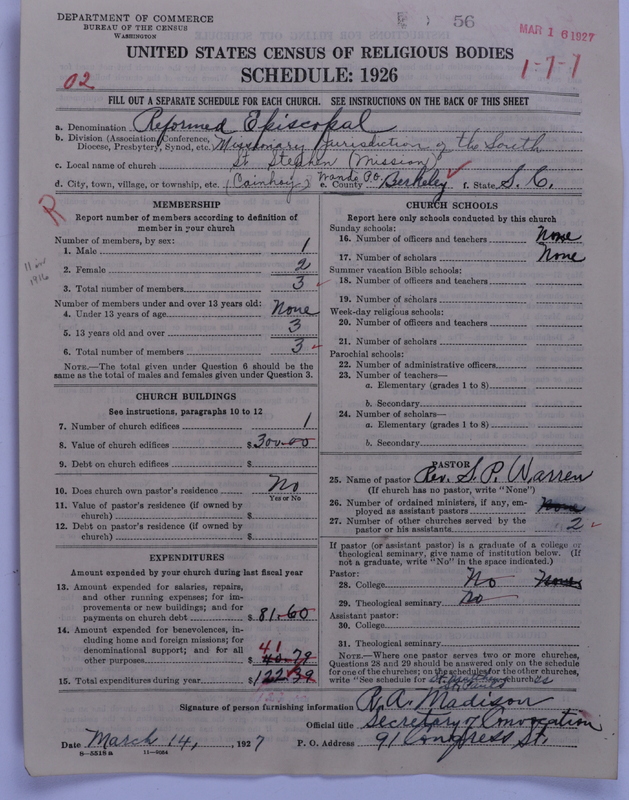 DEPARTMENT OF COMMERCE
BUREAU OF THE CENSUS
WASHINGTON
56
MAR 16 1927
UNITED STATES CENSUS OF RELIGIOUS BODIES
SCHEDULE: 1926
02
1-7-7
FILL OUT A SEPARATE SCHEDULE FOR EACH CHURCH. SEE INSTRUCTIONS ON THE BACK OF THIS SHEET
a. Denomination Reformed Episcopal
b. Division (Association, Conference, Diocese, Presbytery, Synod, etc. Missionary Jurisdiction of the South
c. Local name of church St. Stephen (Mission)
d. City, town, village, or township, etc. (Cainhoy) Wando P.O. e. County Berkeley f. State S. C.
R
MEMBERSHIP
Report number of members according to definition of
member in your church
Number of members, by sex:
1. Male 1
2. Female 2
3. Total number of members 3
Number of members under and over 13 years old:
4. Under 13 years of age None
5. 13 years old and over 3
6. Total number of members 3
NOTE.—The total given under Question 6 should be the
same as the total of males and females given under Question 3.
CHURCH BUILDINGS
See instructions, paragraphs 10 to 12
7. Number of church edifices 1
8. Value of church edifices $ 300.00
9. Debt on church edifices $
10. Does church own pastor's residence No
Yes or No
11. Value of pastor's residence (if owned by
church) $
12. Debt on pastor's residence (if owned by
church) $
EXPENDITURES
Amount expended by your church during last fiscal year
13. Amount expended for salaries, repairs,
and other running expenses; for im-
provements or new buildings; and for
payments on church debt $ 81.60
14. Amount expended for benevolences, in-
cluding home and foreign missions; for
denominational support; and for all
other purposes $ 40.79
41
15. Total expenditures during year $ 122.39
CHURCH SCHOOLS
Report here only schools conducted by this church
Sunday schools:
16. Number of officers and teachers None
17. Number of scholars None
Summer vacation Bible schools:
18. Number of officers and teachers
19. Number of scholars
Week-day religious schools:
20. Number of officers and teachers
21. Number of scholars
Parochial schools:
22. Number of administrative officers
23. Number of teachers—
a. Elementary (grades 1 to 8)
b. Secondary
24. Number of scholars—
a. Elementary (grades 1 to 8)
b. Secondary
PASTOR
25. Name of pastor Rev. S. P. Warren
(If church has no pastor, write "None")
26. Number of ordained ministers, if any, em-
ployed as assistant pastors None
27. Number of other churches served by the
pastor or his assistants 2
If pastor (or assistant pastor) is a graduate of a college or
theological seminary, give name of institution below. (If
not a graduate, write "No" in the space indicated.)
Pastor:
28. College No None
29. Theological seminary No
Assistant pastor:
30. College
31. Theological seminary
NOTE.—Where one pastor serves two or more churches,
Questions 28 and 29 should be answered only on the schedule
for one of the churches; on the schedules for the other churches,
write "See schedule for church"
Signature of person furnishing information R. A. Madison
Official title Secretary of Convocation
Date March 14, 1927 P. O. Address 91 Congress St.
8—5518a 11—9084